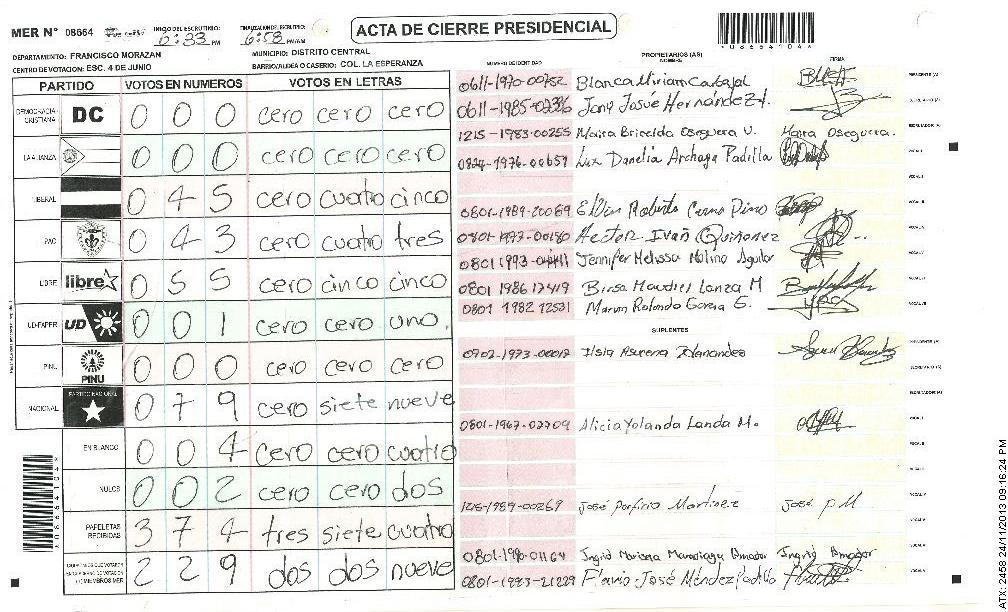 MER N° 08664
INICIO DEL ESCRUTINIO: 6:33 PM
FINALIZACION DEL ESCRUTINIO: 6:58 PM/AM
ACTA DE CIERRE PRESIDENCIAL
DEPARTAMENTO: FRANCISCO MORAZAN
MUNICIPIO: DISTRITO CENTRAL
CENTRO DE VOTACION: ESC. 4 DE JUNIO
BARRIO/ALDEA O CASERIO: COL. LA ESPERANZA
PARTIDO VOTOS EN NUMEROS VOTOS EN LETRAS
DEMOCRACIA CRISTIANA DC 0 0 0 cero cero cero
LA ALIANZA 0 0 0 cero cero cero
LIBERAL 0 4 5 cero cuatro cinco
PAC 0 4 3 cero cuatro tres
LIBRE libre 0 5 5 cero cinco cinco
UD-FAPER UD 0 0 1 cero cero uno.
PINU PINU 0 0 0 cero cero cero
NACIONAL PARTIDO NACIONAL 0 7 9 cero siete nueve
EN BLANCO 0 0 4 cero cero cuatro
NULOS 0 0 2 cero cero dos
PAPELETAS RECIBIDAS 3 7 4 tres siete cuatro
2 2 9 dos dos nueve
NUMERO DE IDENTIDAD PROPIETARIOS (AS) NOMBRE FIRMA
0611-1970-00752 Blanca Miriam Carbajal PRESIDENTE (A)
0611-1985- Jony Josué Hernández SECRETARIO (A)
1215-1983-00255 Maira Briselda Oseguera V. Maira Oseguera. ESCRUTADOR (A)
0824-1976-00657 Luz Danelia Archaga Padilla VOCAL I
VOCAL II
0801-1989-20069 Roberto VOCAL III
0801-1977-00180 Hector Ivan Quiñonez VOCAL IV
0801 1993 Jennifer Melissa Molina Aguilar VOCAL V
0801 1986 17419 Lanza M
0801 1982 12531 Marvin Rolando
SUPLENTES
0702-1973-00012 Ilsia Azucena PRESIDENTE (A)
SECRETARIO (A)
ESCRUTADOR (A)
0801-1967-02709 Alicia Yolanda Landa M. VOCAL I
VOCAL II
1215-1989-00269 José Porfirio Martinez José P M
0801-1990-01164 Ingrid Mariana Amador Ingrid Amador
0801-1983-21229 Flavio José Méndez Padilla
ATX: 2458 24/11/2013 09:16:24 PM